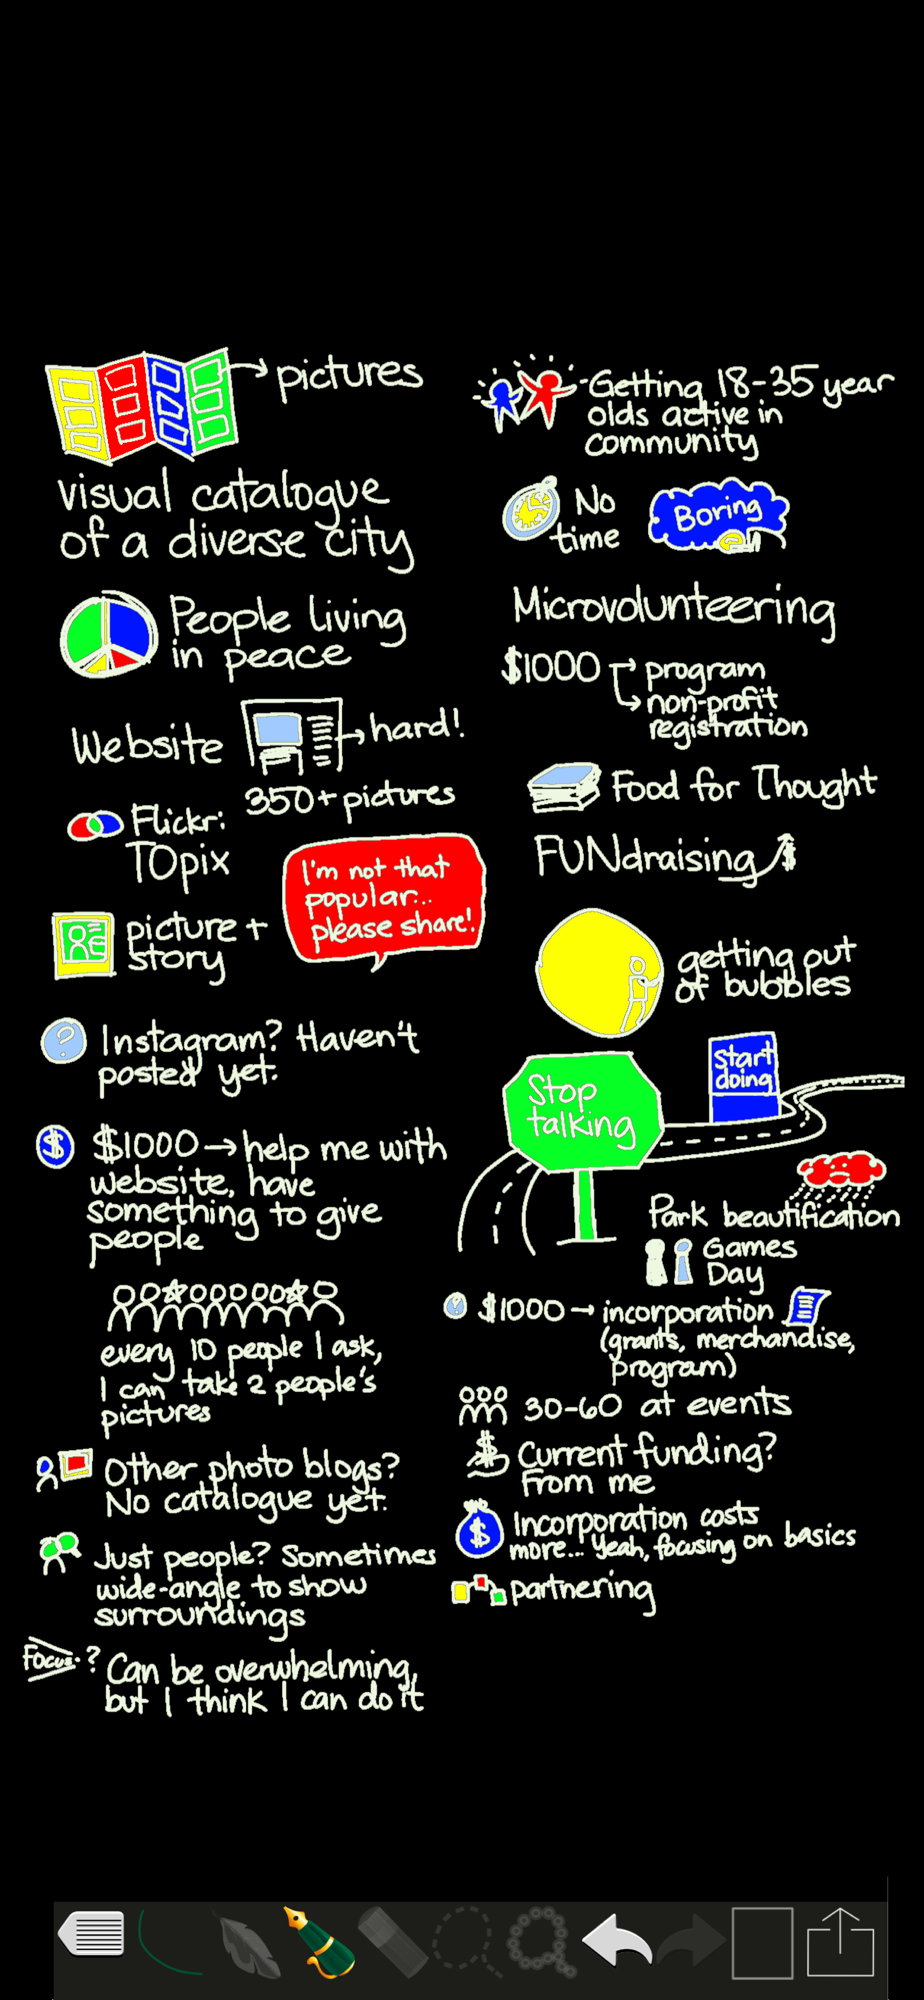 pictures
visual catalogue
of a diverse city
People living
in peace
Website
hard!
350+ pictures
Flickr:
TOpix
I'm not that
popular...
please share!
picture +
story
? Instagram? Haven't
posted yet.
$ $1000 → help me with
website, have
something to give
people
every 10 people I ask,
I can take 2 people's
pictures
Other photo blogs?
No catalogue yet.
Just people? Sometimes
wide-angle to show
surroundings
Focus.?
Can be overwhelming,
but I think I can do it
- Getting 18-35 year
olds active in
community
No
time
Boring
Microvolunteering
$1000 → program
→ non-profit
registration
Food for Thought
FUNdraising $
getting out
of bubbles
Stop
talking
Start
doing
Park beautification
Games
Day
? $1000 → incorporation
(grants, merchandise,
program)
30-60 at events
$ Current funding?
From me
$ Incorporation costs
more... Yeah, focusing on basics
partnering